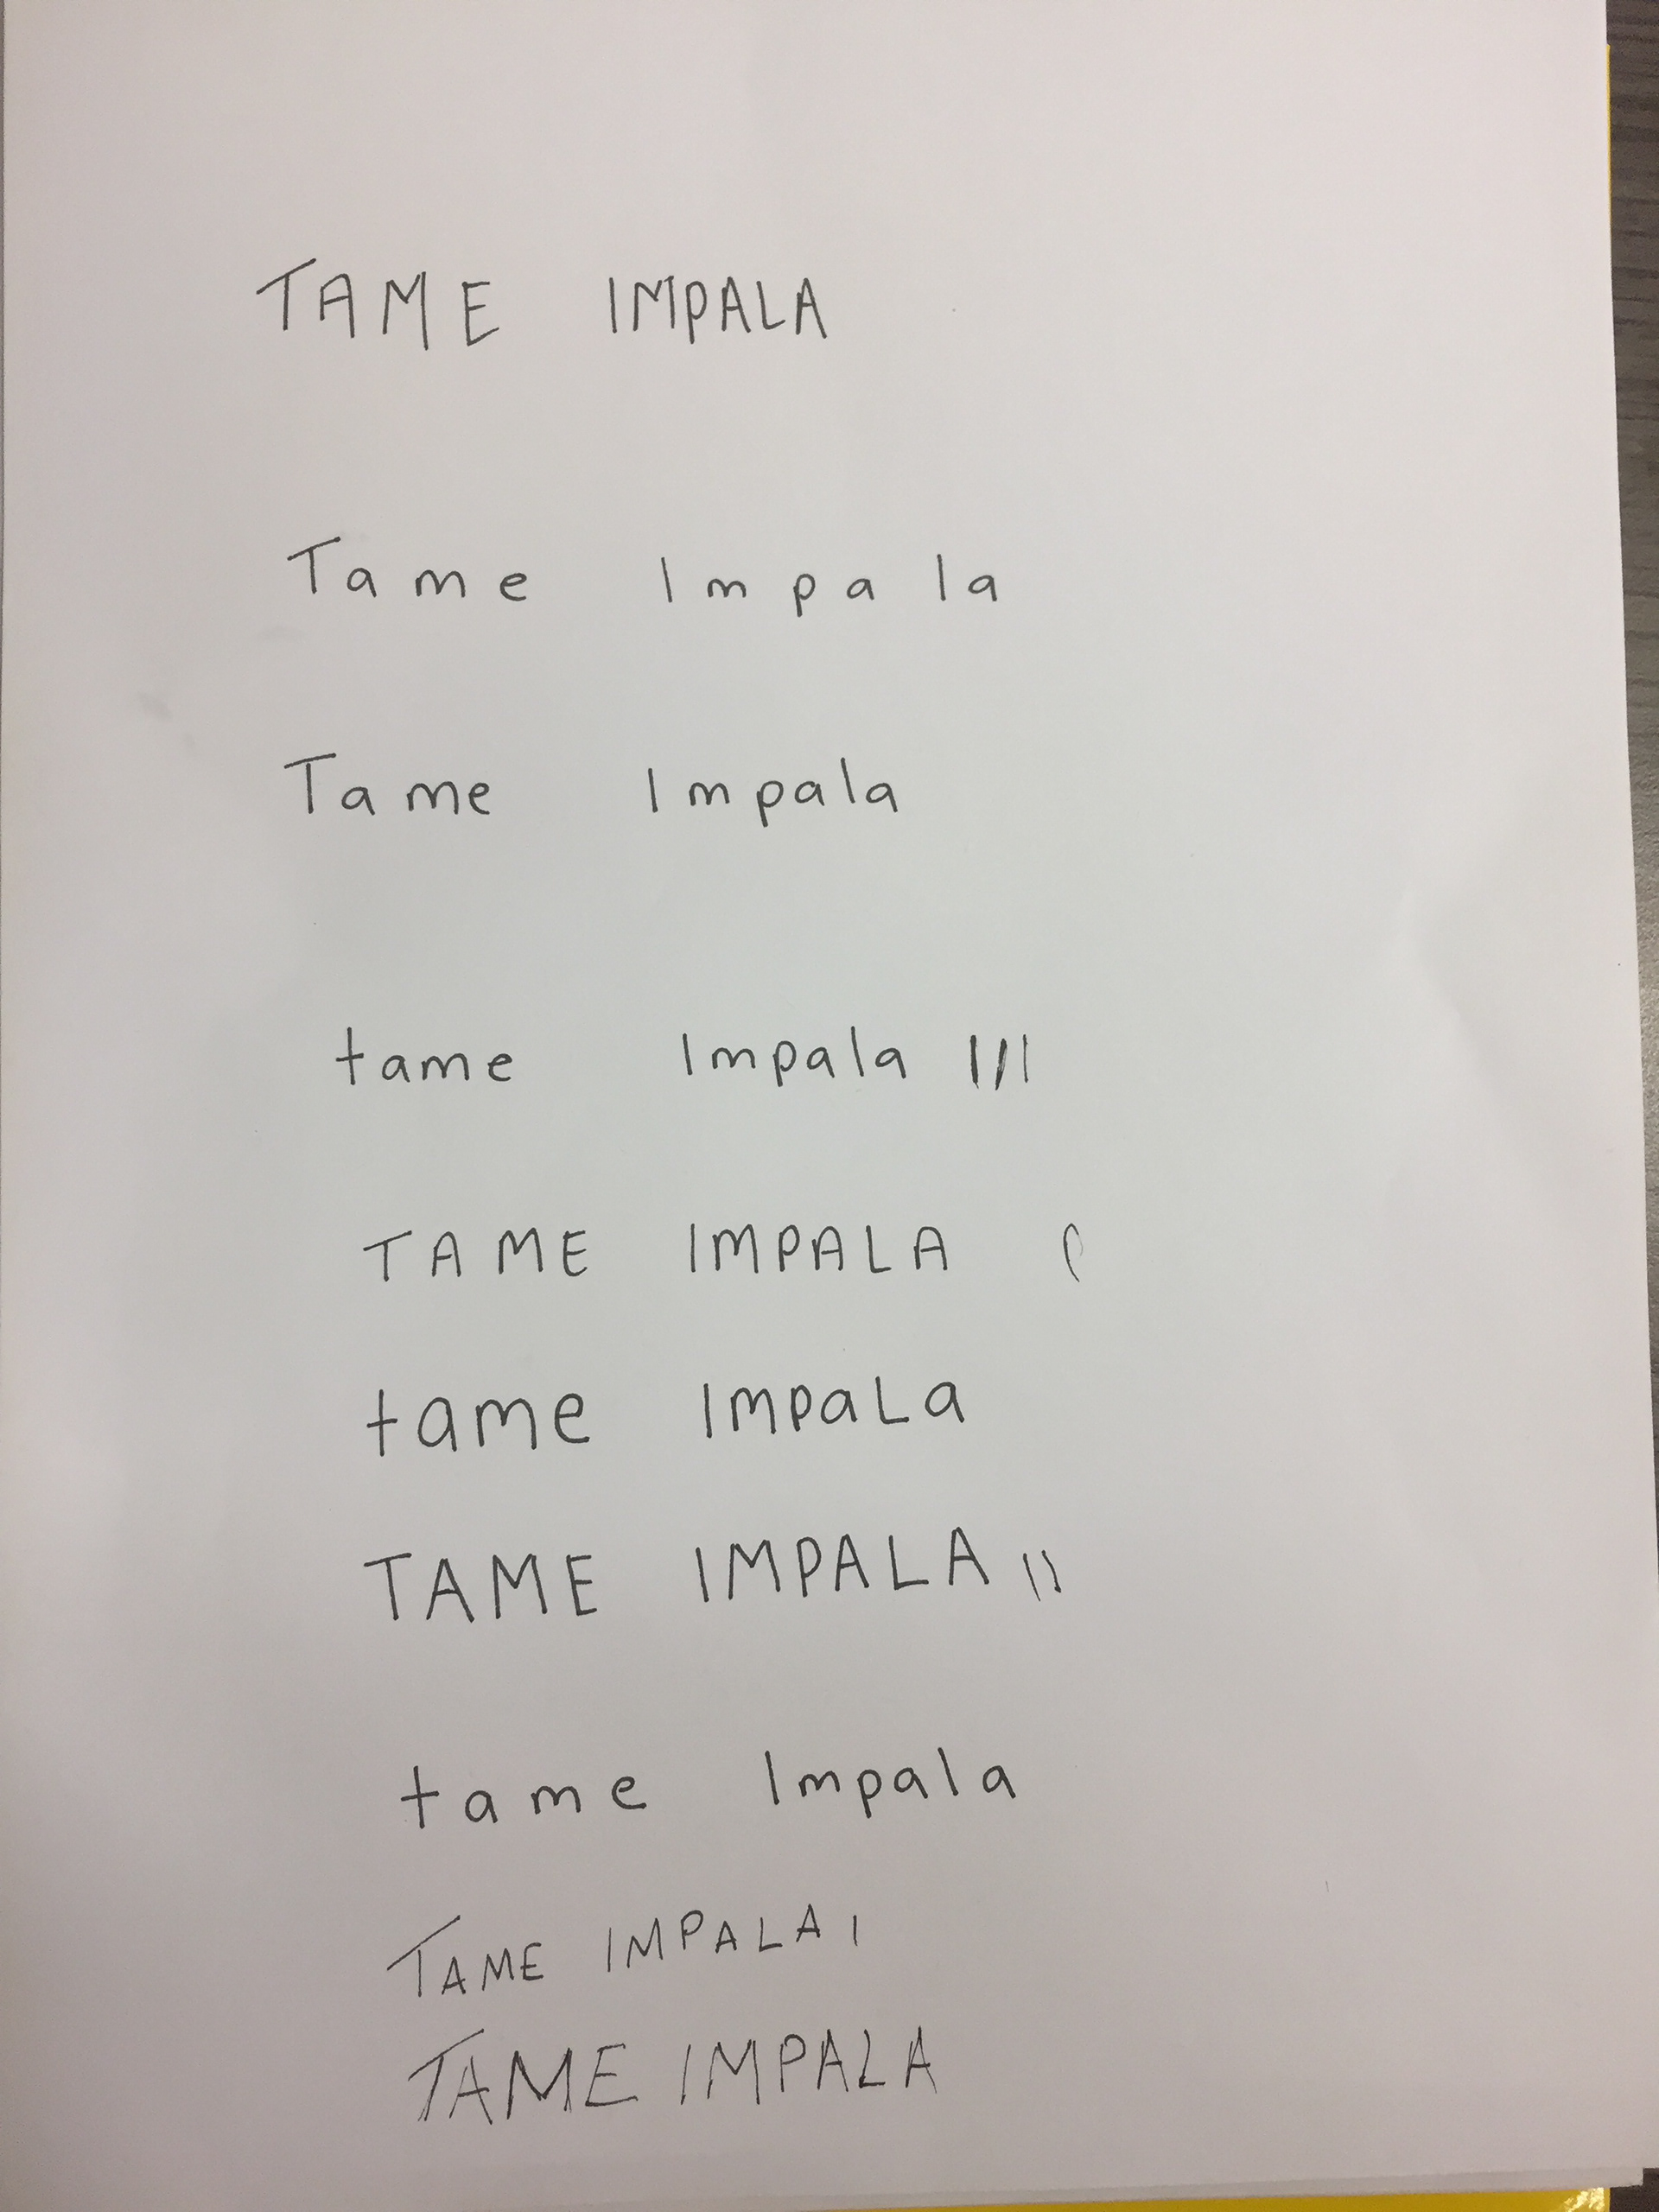 TAME IMPALA
Tame Impala
Tame Impala
tame Impala |||
TAME IMPALA (
tame ImpaLa
TAME IMPALA ||
tame Impala
TAME IMPALA |
TAME IMPALA